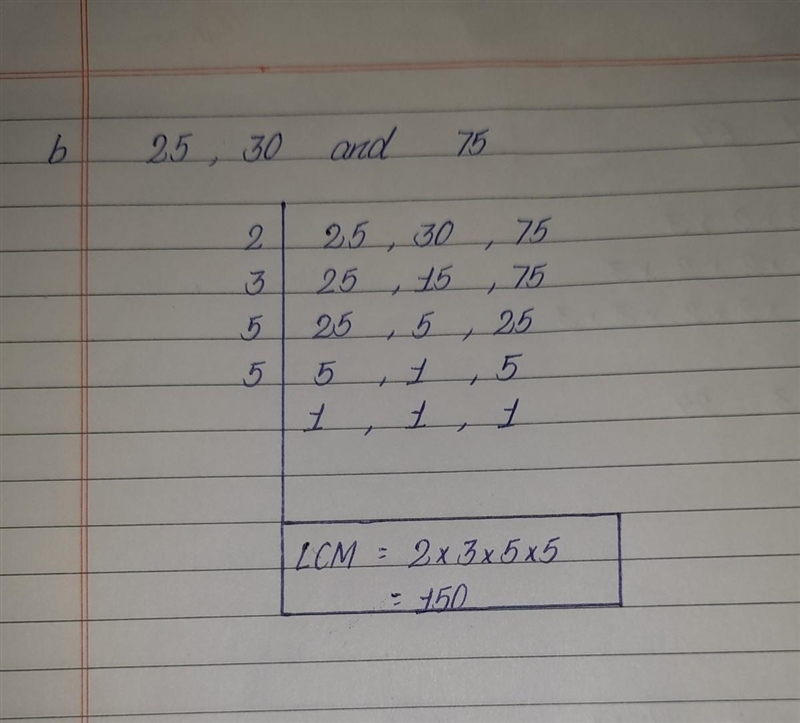 b 25 , 30 and 75
2 25 , 30 , 75
3 25 , 15 , 75
5 25 , 5 , 25
5 5 , 1 , 5
1 , 1 , 1
LCM = 2x3x5x5
= 150